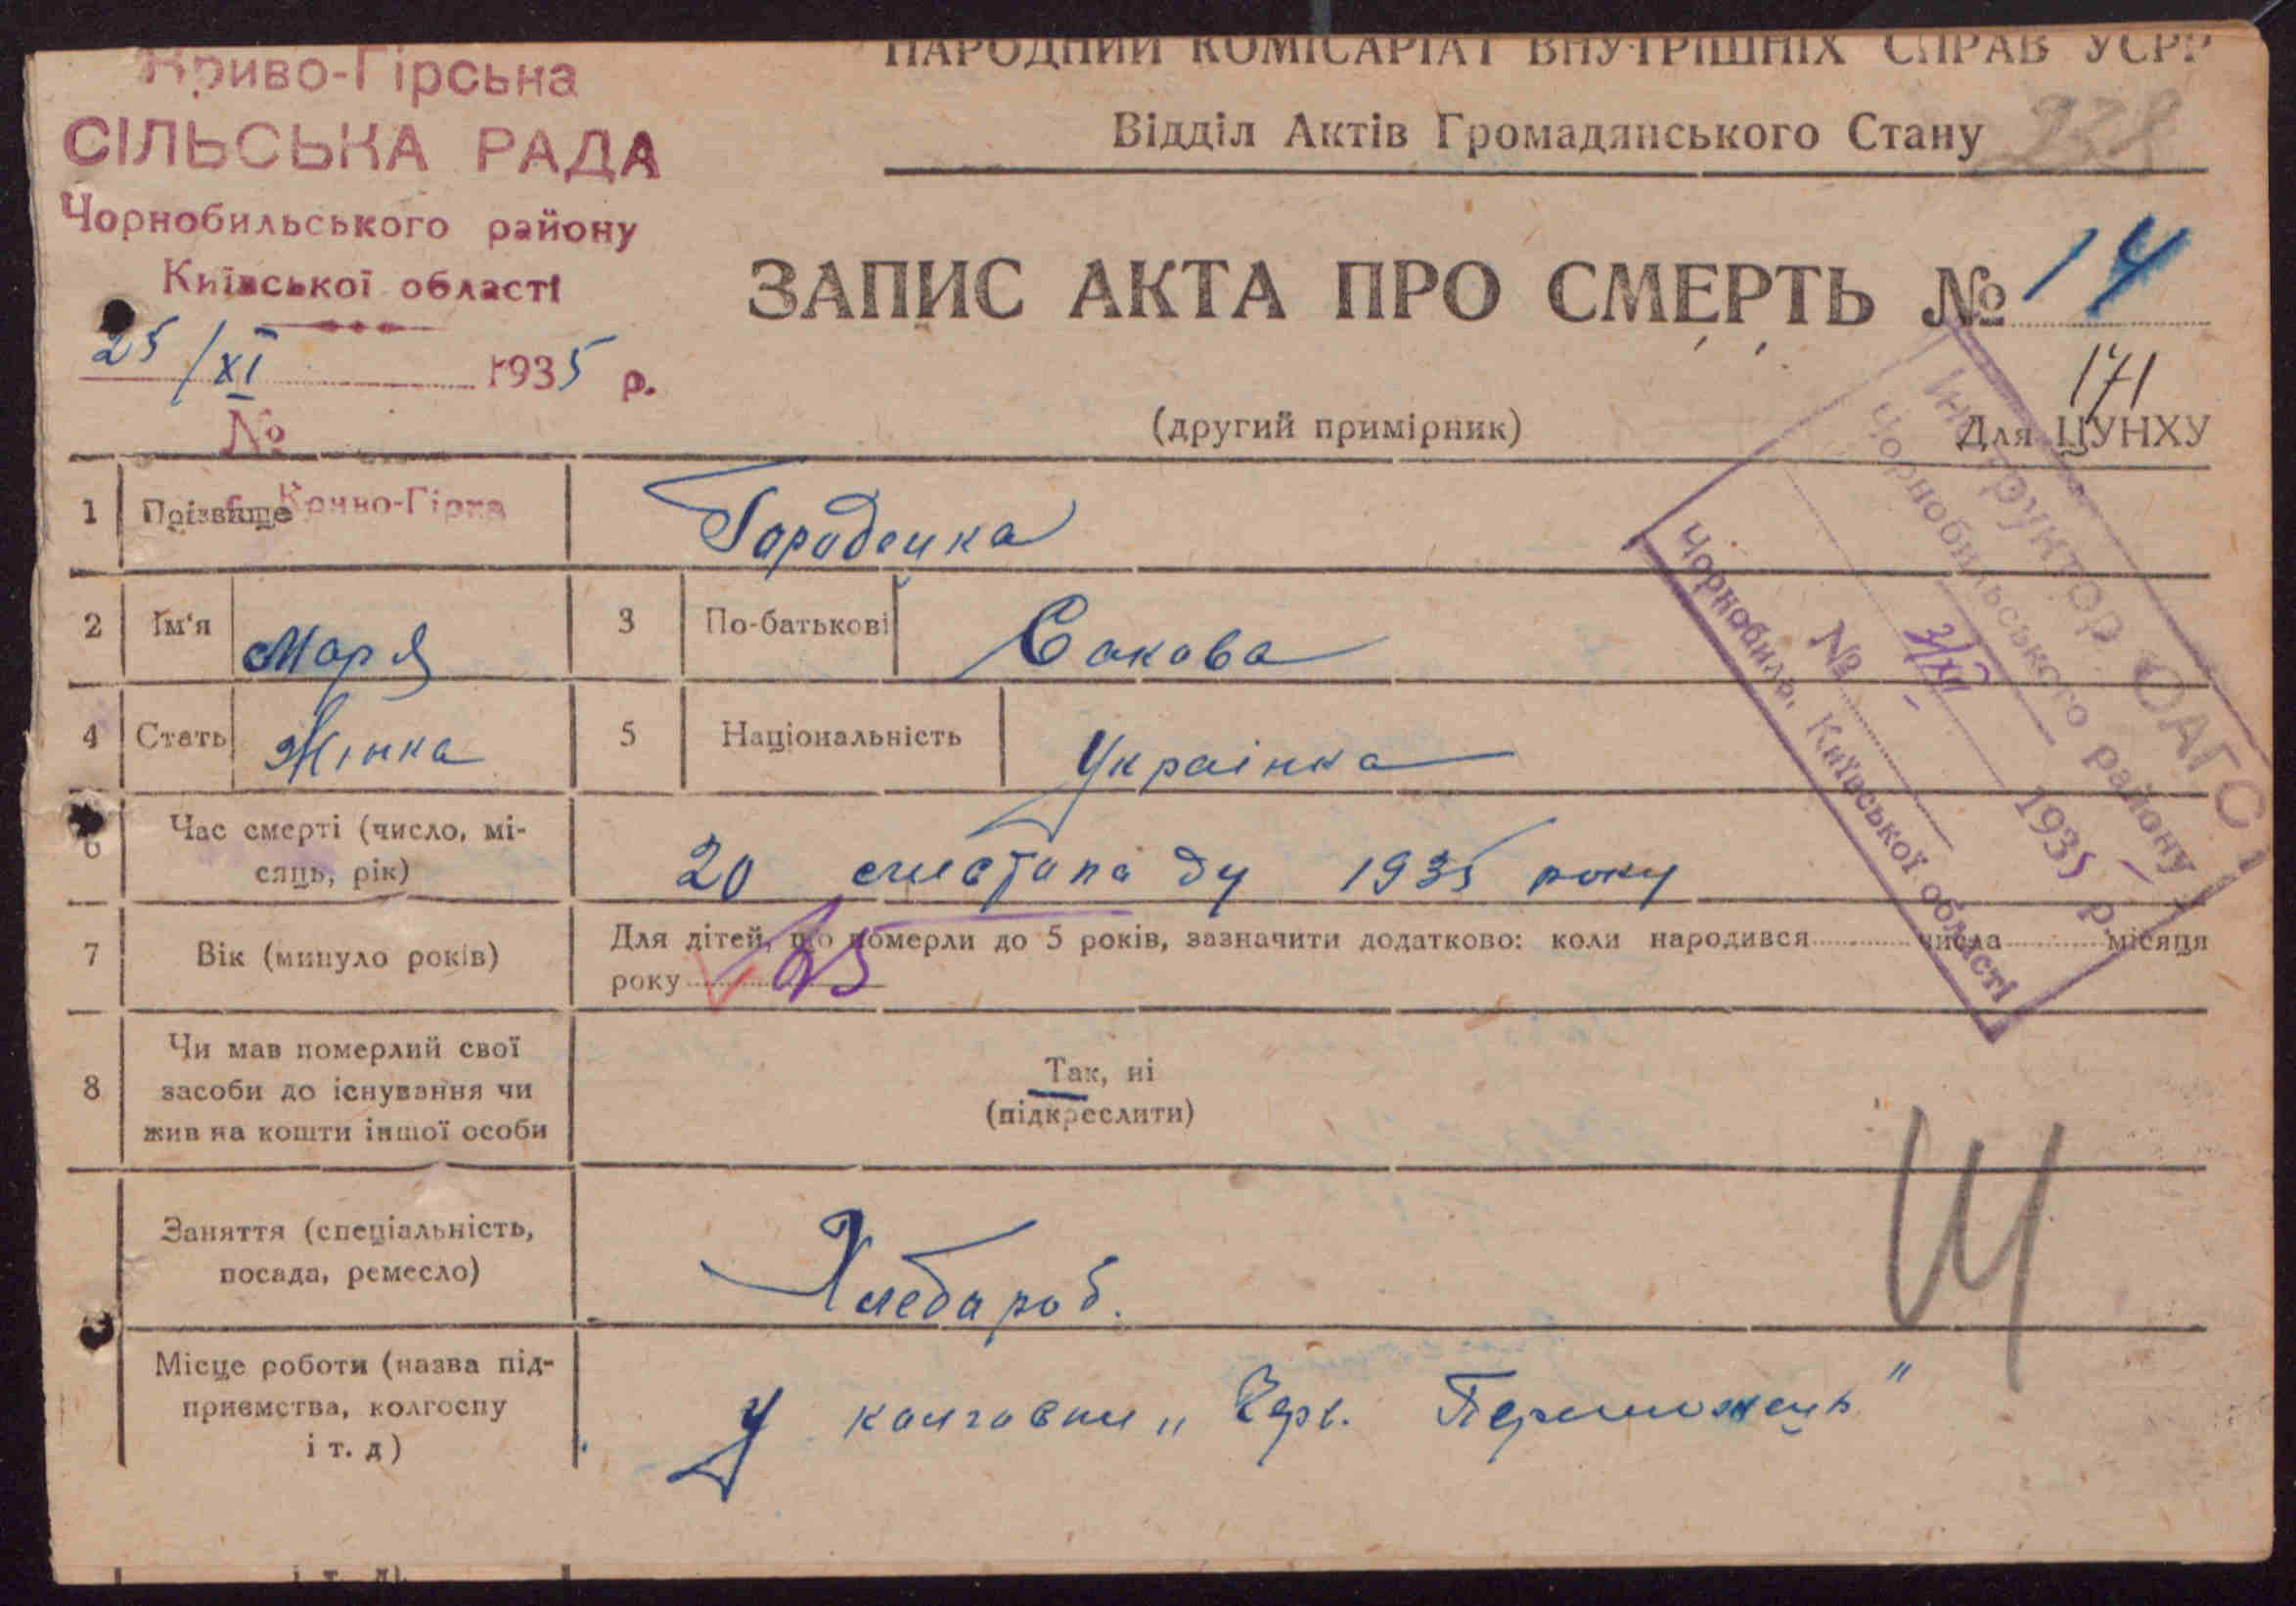 Криво-Гірська
СІЛЬСЬКА РАДА
Чорнобильського району
Київської області
25/XI 1935 р.
№
с. Криво-Гірка
НАРОДНИЙ КОМІСАРІАТ ВНУТРІШНІХ СПРАВ УСРР
Відділ Актів Громадянського Стану
238
ЗАПИС АКТА ПРО СМЕРТЬ № 14
171
(другий примірник)
Для ЦУНХУ
Інструктор ОАГС
Чорнобильського району
3/XII 1935 р.
№
Чорнобиль, Київської області
1 Прізвище Городецка
2 Ім'я Марія 3 По-батькові Сакова
4 Стать Жінка 5 Національність Украінка
6 Час смерті (число, мі-
сяць, рік) 20 листападу 1935 року
7 Вік (минуло років) Для дітей, що померли до 5 років, зазначити додатково: коли народився числа місяця
року 65
8 Чи мав померлий свої
засоби до існування чи
жив на кошти іншої особи
Так, ні
(підкреслити)
Заняття (спеціальність,
посада, ремесло) Хлебароб.
Місце роботи (назва під-
приємства, колгоспу
і т. д) У колгоспи „Черв. Переможець"
і т. д)